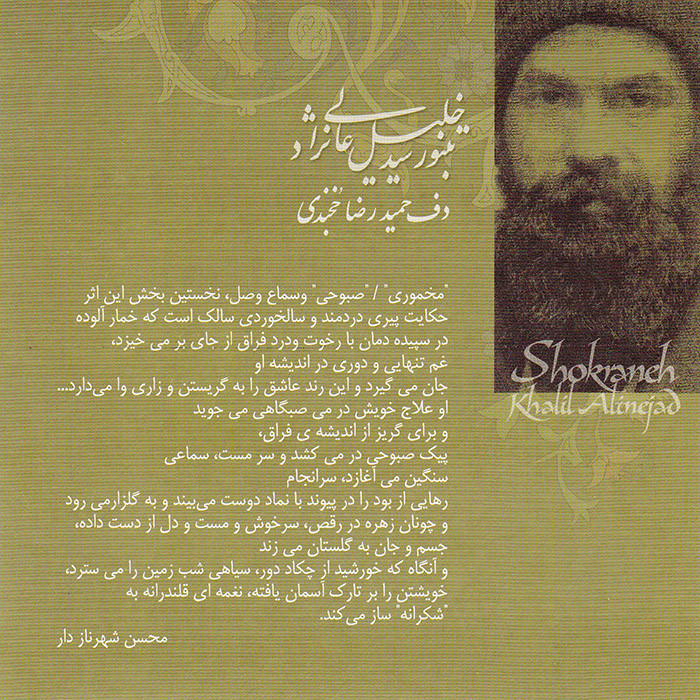 تنبور سید خلیل عالی نژاد
دف حمید رضا خجندی
"مخموری" / "صبوحی" وسماع وصل، نخستین بخش این اثر
حکایت پیری دردمند و سالخوردی سالک است که خمار آلوده
در سپیده دمان با رخوت ودرد فراق از جای بر می خیزد،
غم تنهایی و دوری در اندیشه او
جان می گیرد و این رند عاشق را به گریستن و زاری وا می‌دارد...
او علاج خویش در می صبگاهی می جوید
و برای گریز از اندیشه ی فراق،
پیک صبوحی در می کشد و سر مست، سماعی
سنگین می آغازد، سرانجام
رهایی از بود را در پیوند با نماد دوست می‌بیند و به گلزارمی رود
و چونان زهره در رقص، سرخوش و مست و دل از دست داده،
جسم و جان به گلستان می زند
و آنگاه که خورشید از چکاد دور، سیاهی شب زمین را می سترد،
خویشتن را بر تارک آسمان یافته، نغمه ای قلندرانه به
"شکرانه" ساز می‌کند.
محسن شهرناز دار
Shokraneh
Khalil Alinejad